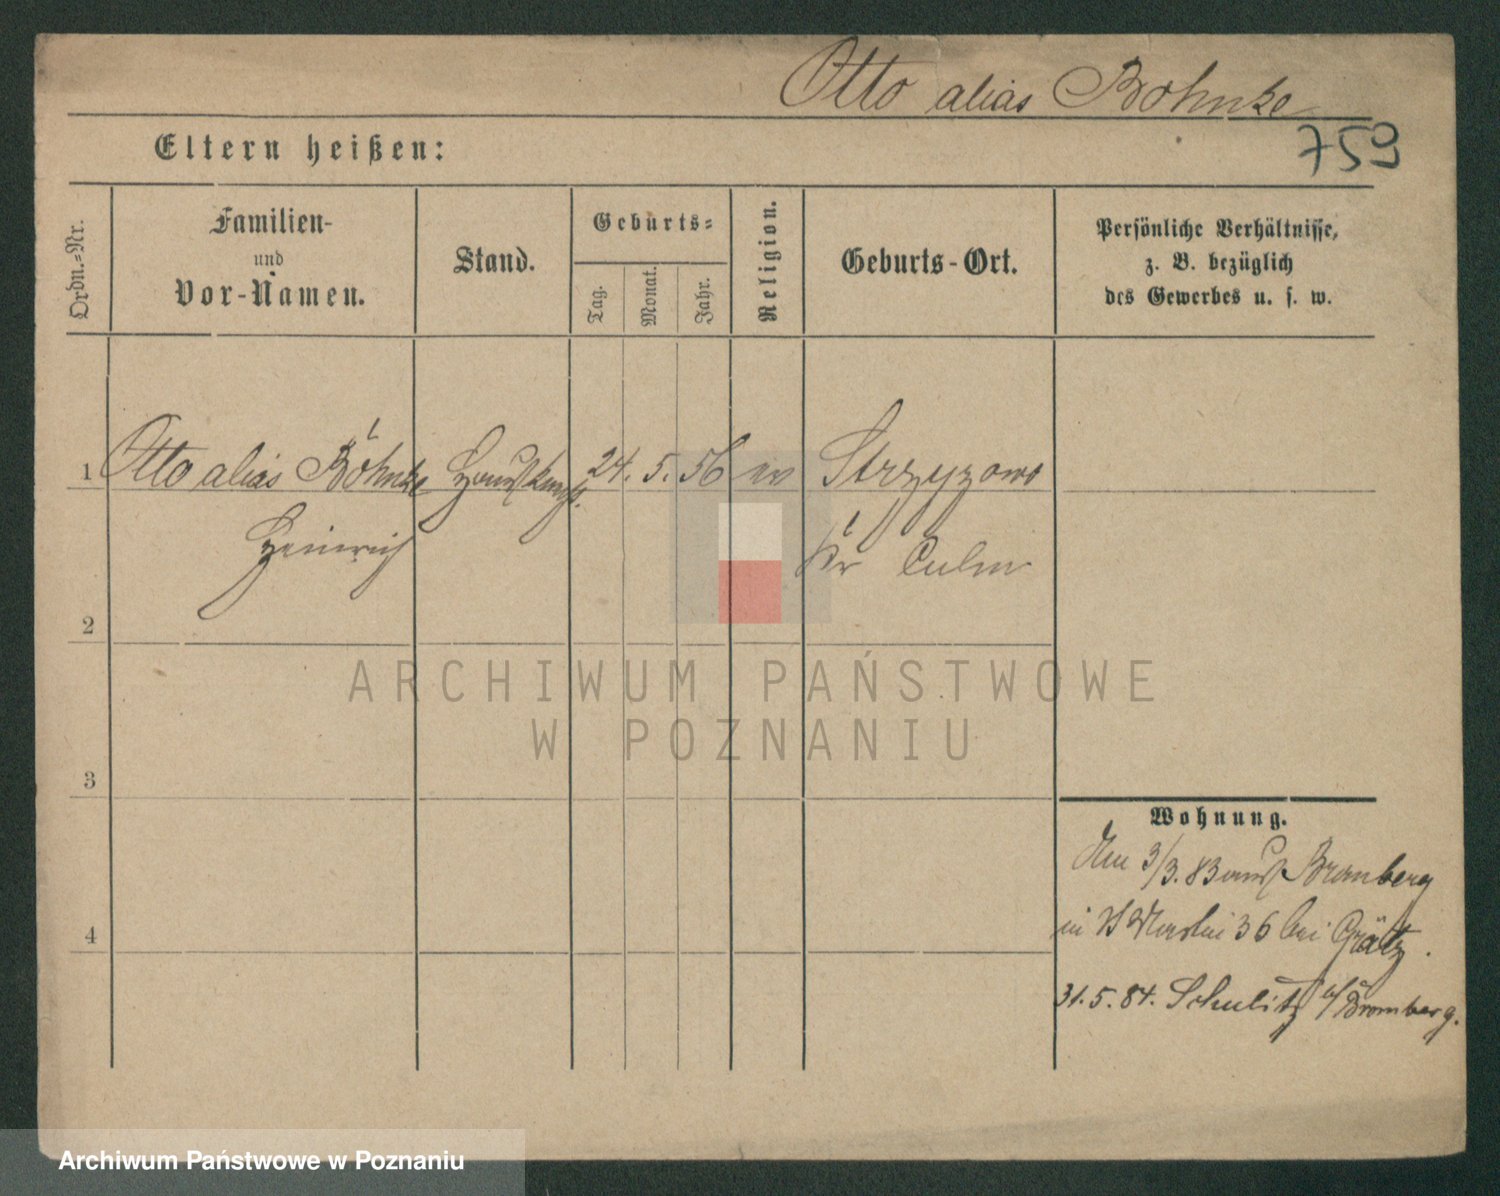 Otto alias Böhnke
759
Eltern heißen:
Ordn.-Nr.
Familien-
und
Vor-Namen.
Stand.
Geburts-
Tag.
Monat.
Jahr.
Religion.
Geburts-Ort.
Persönliche Verhältnisse,
z. B. bezüglich
des Gewerbes u. s. w.
1 Otto alias Böhnke 24. 5. 56 ev Strzyzowo
Heinrich Kr Culm
2
ARCHIWUM PAŃSTWOWE
W POZNANIU
3
Wohnung.
3/3. 83 aus Bromberg
in 36 bei Grätz.
4
31.5.84. Schulitz b/Bromberg.
Archiwum Państwowe w Poznaniu